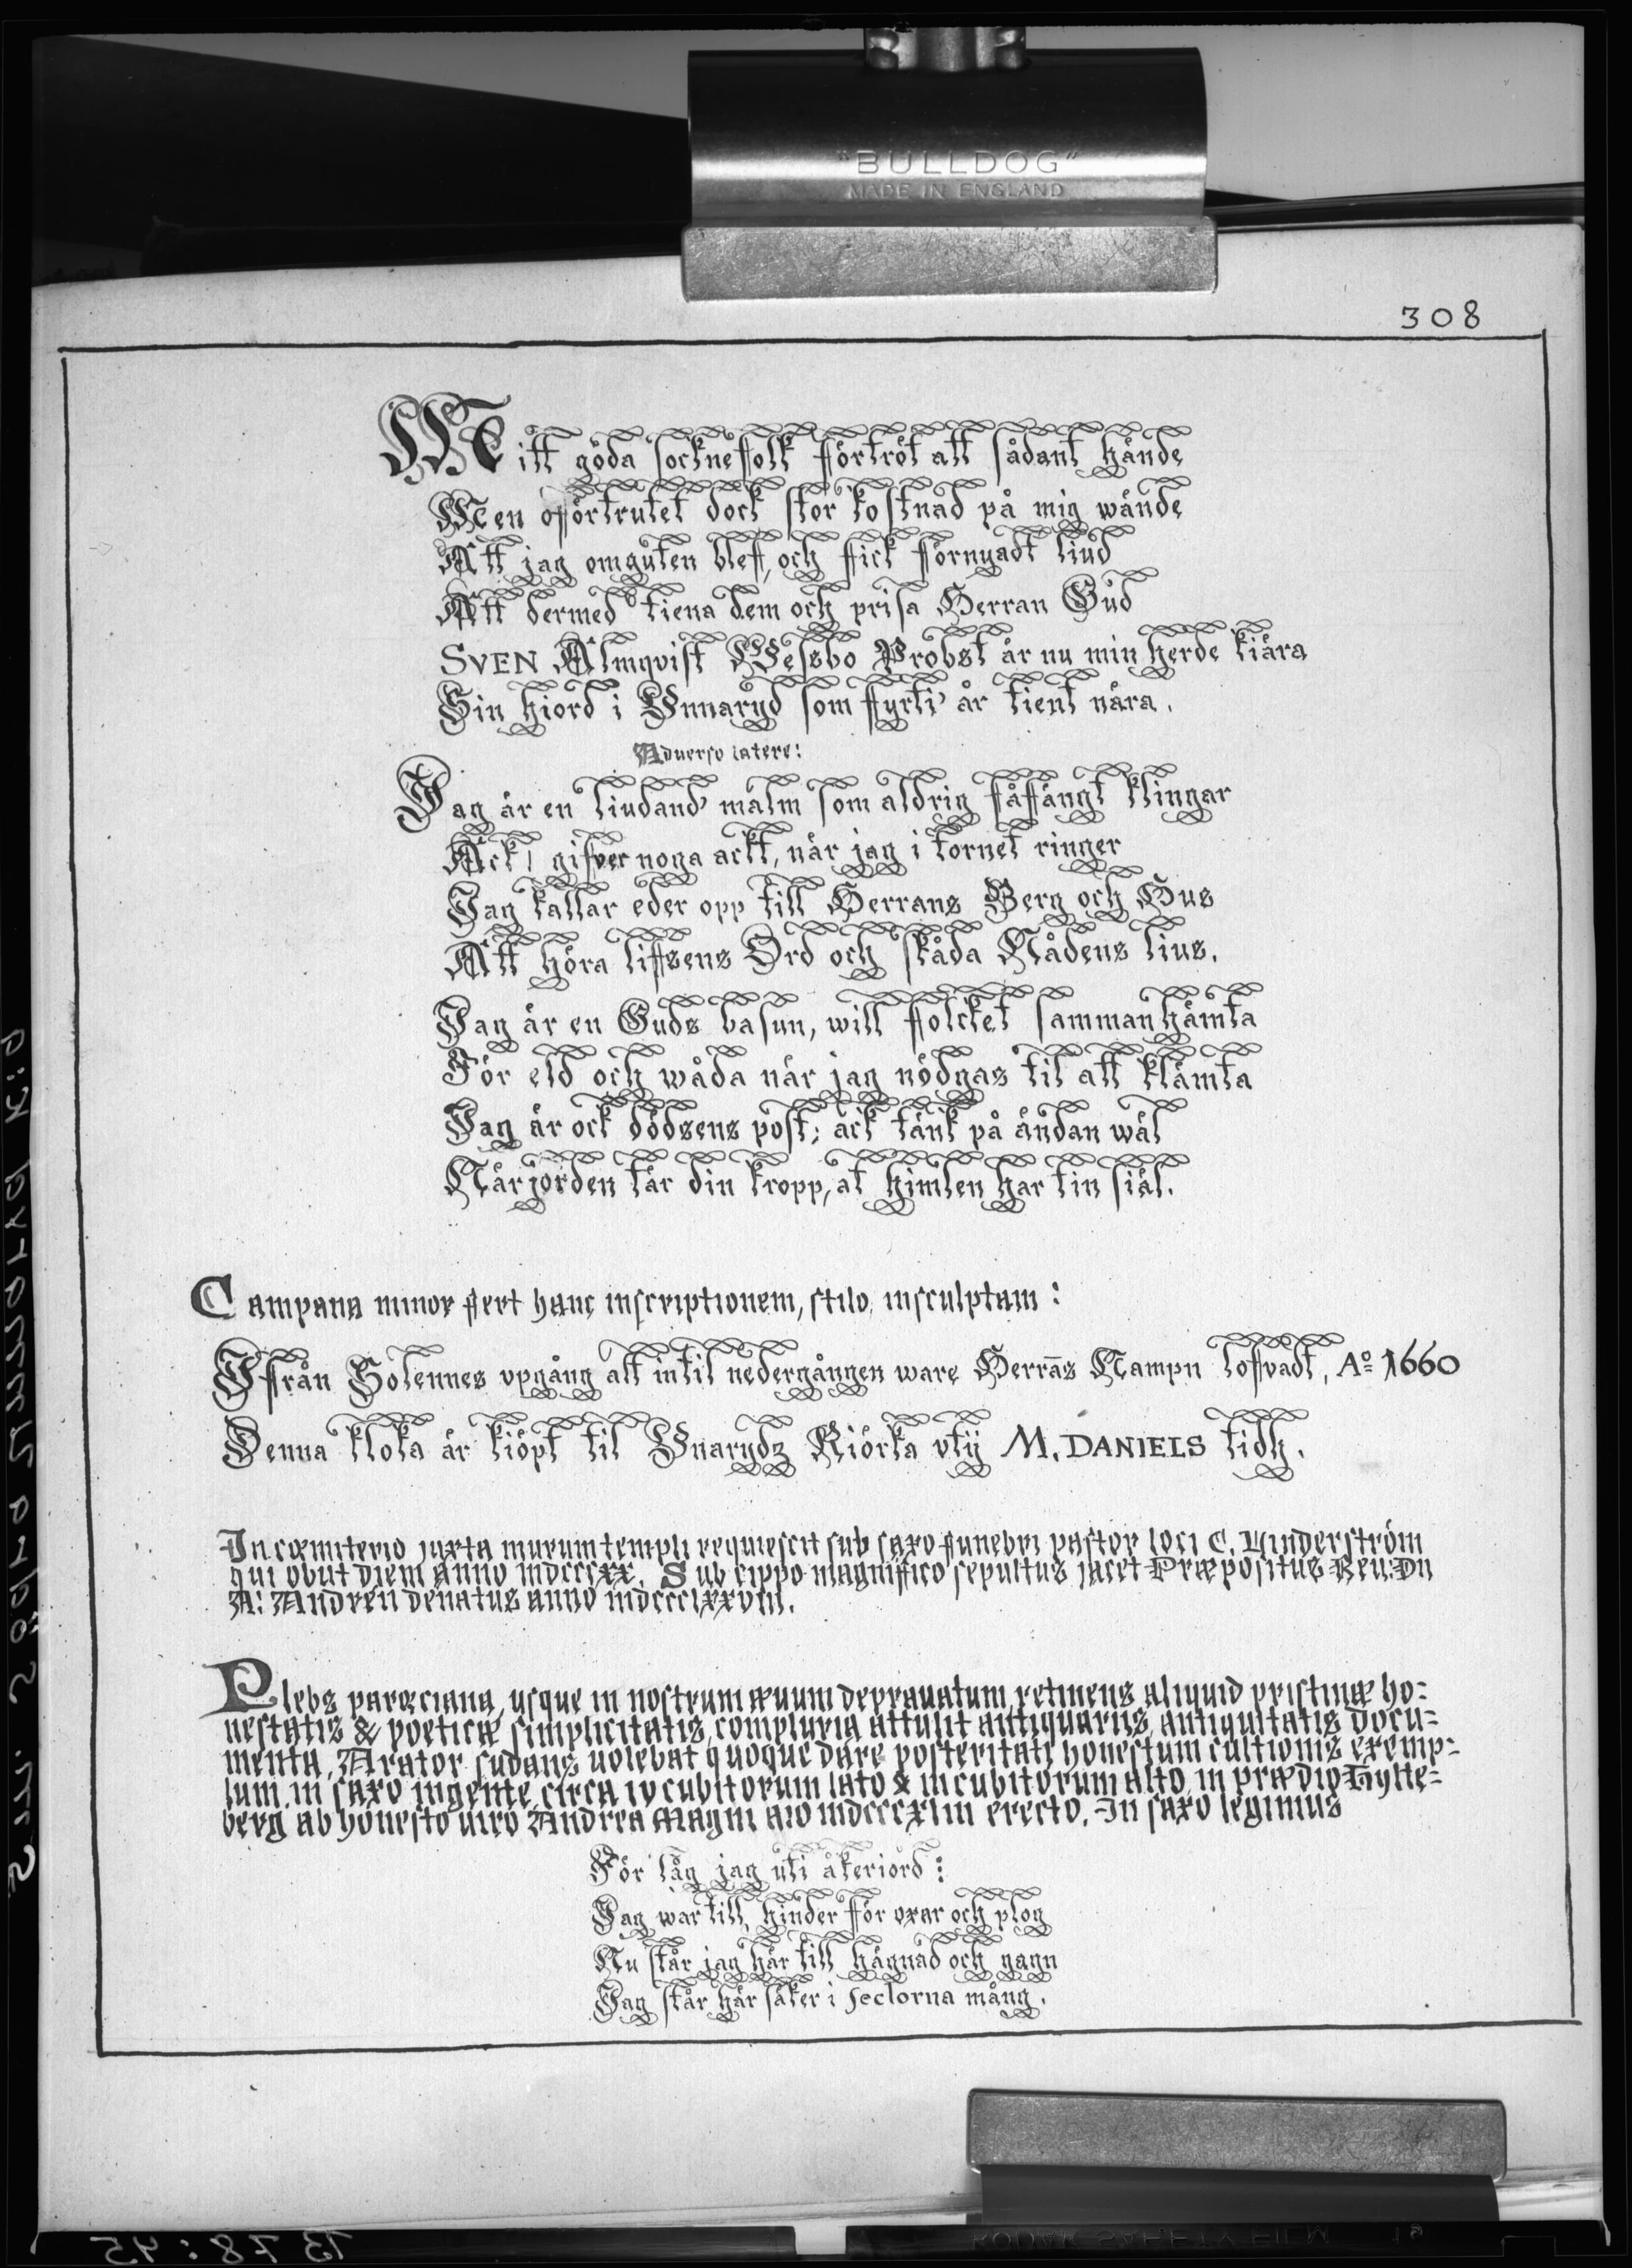 "BULLDOG"
MADE IN ENGLAND
308
Mitt goda socknefolk förtröt att sådant hände
Men oförtrutet dock stor kostnad på mig wände
Att jag omguten blef, och fick förnyadt liud
Att dermed tiena dem och prisa Herran Gud
SVEN Almqvist Wessbo Probst är nu min herde kiära
Sin hiord i Unnaryd som fyrti' år tient nära.
Aduerso latere:
Jag är en liudand' malm som aldrig fåfängt klingar
Ack! gifver noga ackt, när jag i tornet ringer
Jag kallar eder opp till Herrans Berg och Hus
Att höra lifsens Ord och skåda Nådens lius.
Jag är en Guds basun, will folcket samman hämta
För eld och wåda när jag nödgas til att klämta
Jag är ock dödsens post; ack tänk på ändan wäl
När jorden tär din kropp, at himlen har tin siäl.
Campana minor fert hanc inscriptionem, stilo insculptam:
Ifrån Solennes vpgång alt intil nedergången ware Herrās Nampn loffvadt, Aº 1660
Denna kloka är kiöpt til Unarydz Kiörka vtij M. DANIELS tidh.
In cœmiterio juxta murum templi requiescit sub saxo funebri pastor loci C. Linderström
qui obiit diem anno mdcccxx. Sub cippo magnifico sepultus jacet Præpositus Reu: Dn
A: Andrén denatus anno mdccclxxviii.
Plebs parœciana, usque in nostrum æuum deprauatum retinens aliquid pristinæ ho=
nestatis & poeticæ simplicitatis, compluria attulit antiquariis antiquitatis docu=
menta. Arator sudans uolebat quoque dare posteritati honestum cultionis exemp=
lum in saxo ingente circa iv cubitorum lato & iii cubitorum alto, in prædio Hylte=
berg ab honesto uiro Andrea Magni aio mdcccxliii erecto. In saxo legimus
För låg jag uti åkeriord:
Jag war till hinder för oxar och plog
Nu står jag här till hägnad och gagn
Jag står här säker i seclorna mång.
1378:45
KODAK SAFETY FILM